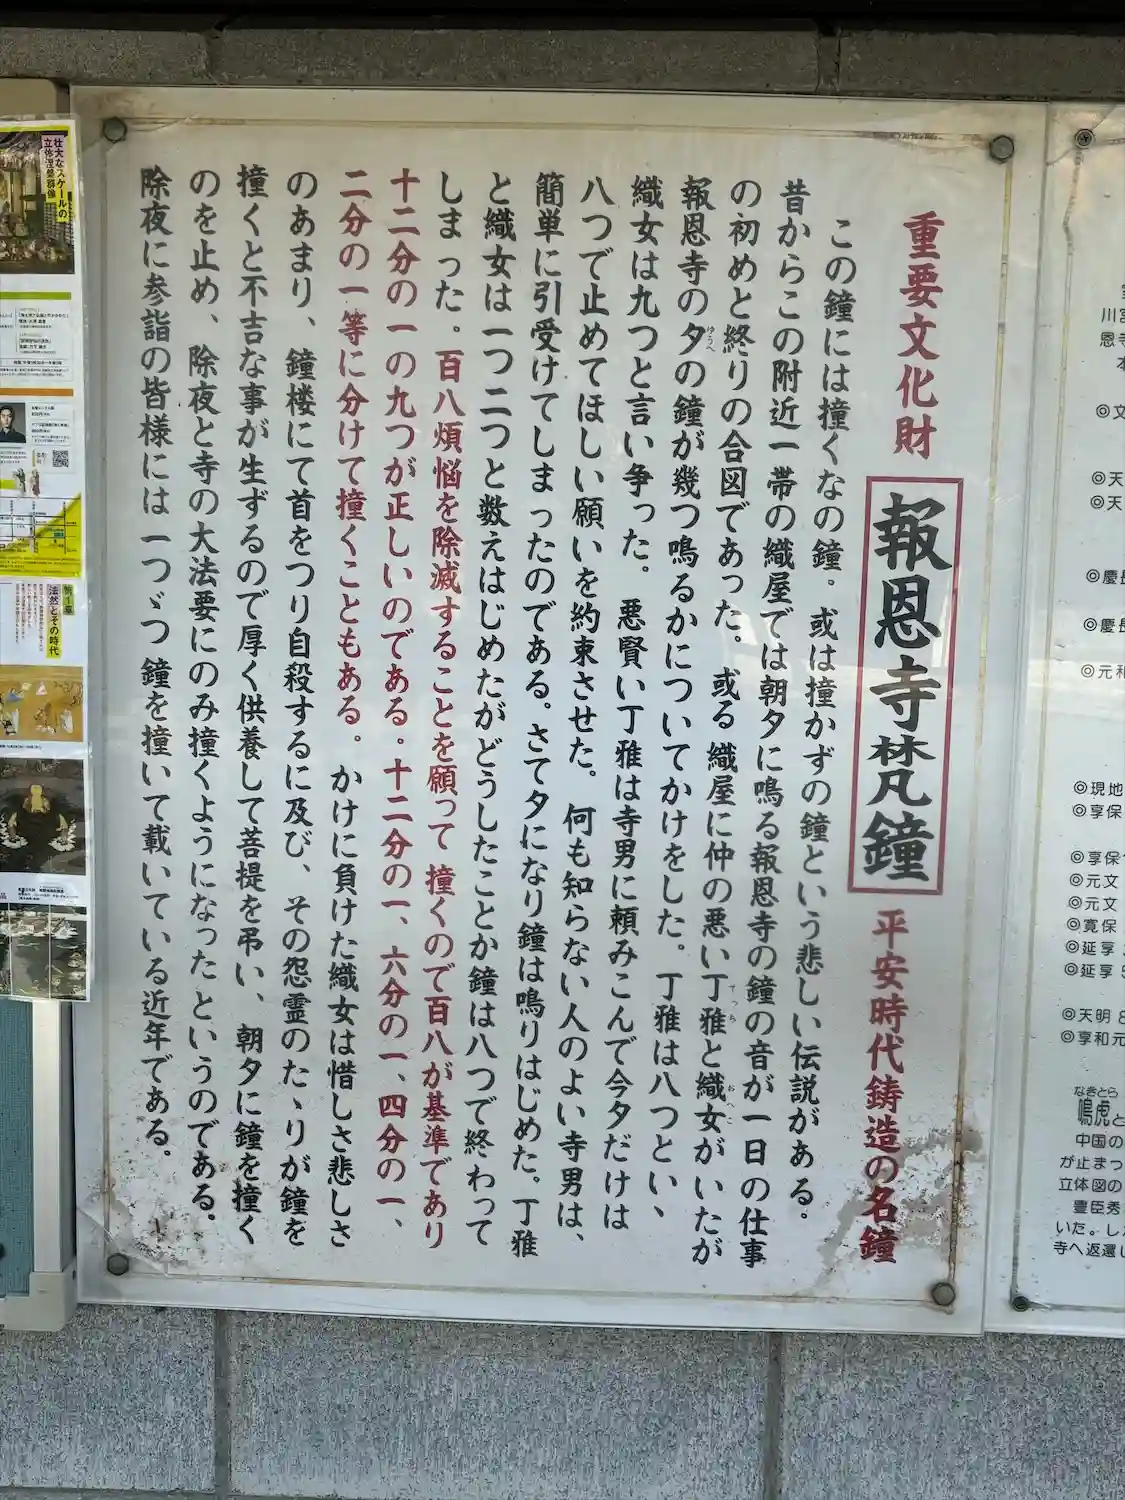 重要文化財 報恩寺梵鐘 平安時代鋳造の名鐘
この鐘には撞くなの鐘。或は撞かずの鐘という悲しい伝説がある。
昔からこの附近一帯の織屋では朝夕に鳴る報恩寺の鐘の音が一日の仕事
の初めと終りの合図であった。或る織屋に仲の悪い丁雅と織女がいたが
でっち
おへこ
報恩寺の夕の鐘が幾つ鳴るかについてかけをした。丁雅は八つといい、
ゆうべ
織女は九つと言い争った。悪賢い丁雅は寺男に頼みこんで今夕だけは
八つで止めてほしい願いを約束させた。何も知らない人のよい寺男は、
簡単に引受けてしまったのである。さて夕になり鐘は鳴りはじめた。丁雅
と織女は一つ二つと数えはじめたがどうしたことか鐘は八つで終わって
しまった。百八煩悩を除滅することを願って撞くので百八が基準であり
十二分の一の九つが正しいのである。十二分の一、六分の一、四分の一、
二分の一等に分けて撞くこともある。かけに負けた織女は惜しさ悲しさ
のあまり、鐘楼にて首をつり自殺するに及び、その怨霊のたゝりが鐘を
撞くと不吉な事が生ずるので厚く供養して菩提を弔い、朝夕に鐘を撞く
のを止め、除夜と寺の大法要にのみ撞くようになったというのである。
除夜に参詣の皆様には一つゞつ鐘を撞いて載いている近年である。
壮大なスケールの
立体涅槃群像
第1章
法然とその時代
川宮
恩寺
◎文
◎天
◎天
◎慶長
◎慶長
◎元和
◎現地
◎享保
◎享保
◎元文
◎元文
◎寛保
◎延享
◎延享
◎天明 8
◎享和元
なきとら
鳴虎と
中国の
が止まっ
立体図の
豊臣秀
いた。し
寺へ返還し